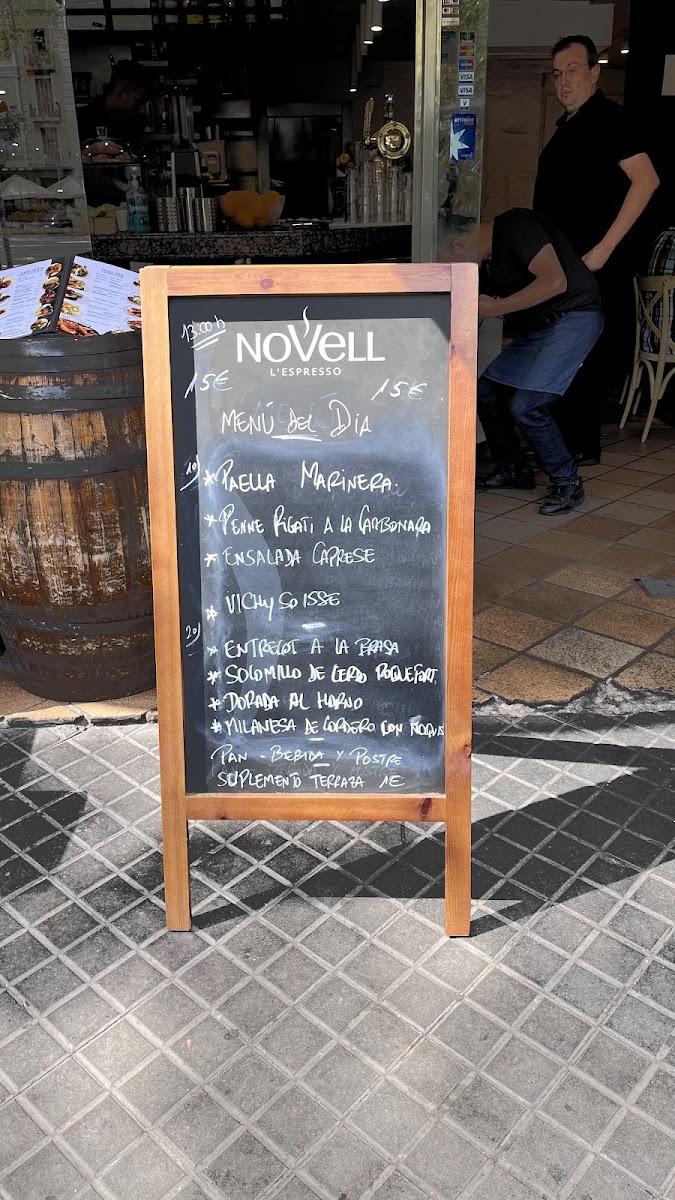 13:00 h
NOVELL
L'ESPRESSO
15€ 15€
MENÚ DEL DÍA
1º)
* PAELLA MARINERA.
* PENNE RIGATI A LA CARBONARA
* ENSALADA CAPRESE
* VICHYSOISSE
2º)
* ENTRECOT A LA BRASA
* SOLOMILLO DE CERDO ROQUEFORT.
* DORADA AL HORNO
* MILANESA DE CORDERO CON ÑOQUIS
PAN - BEBIDA Y POSTRE
SUPLEMENTO TERRAZA 1€
VISA
VISA